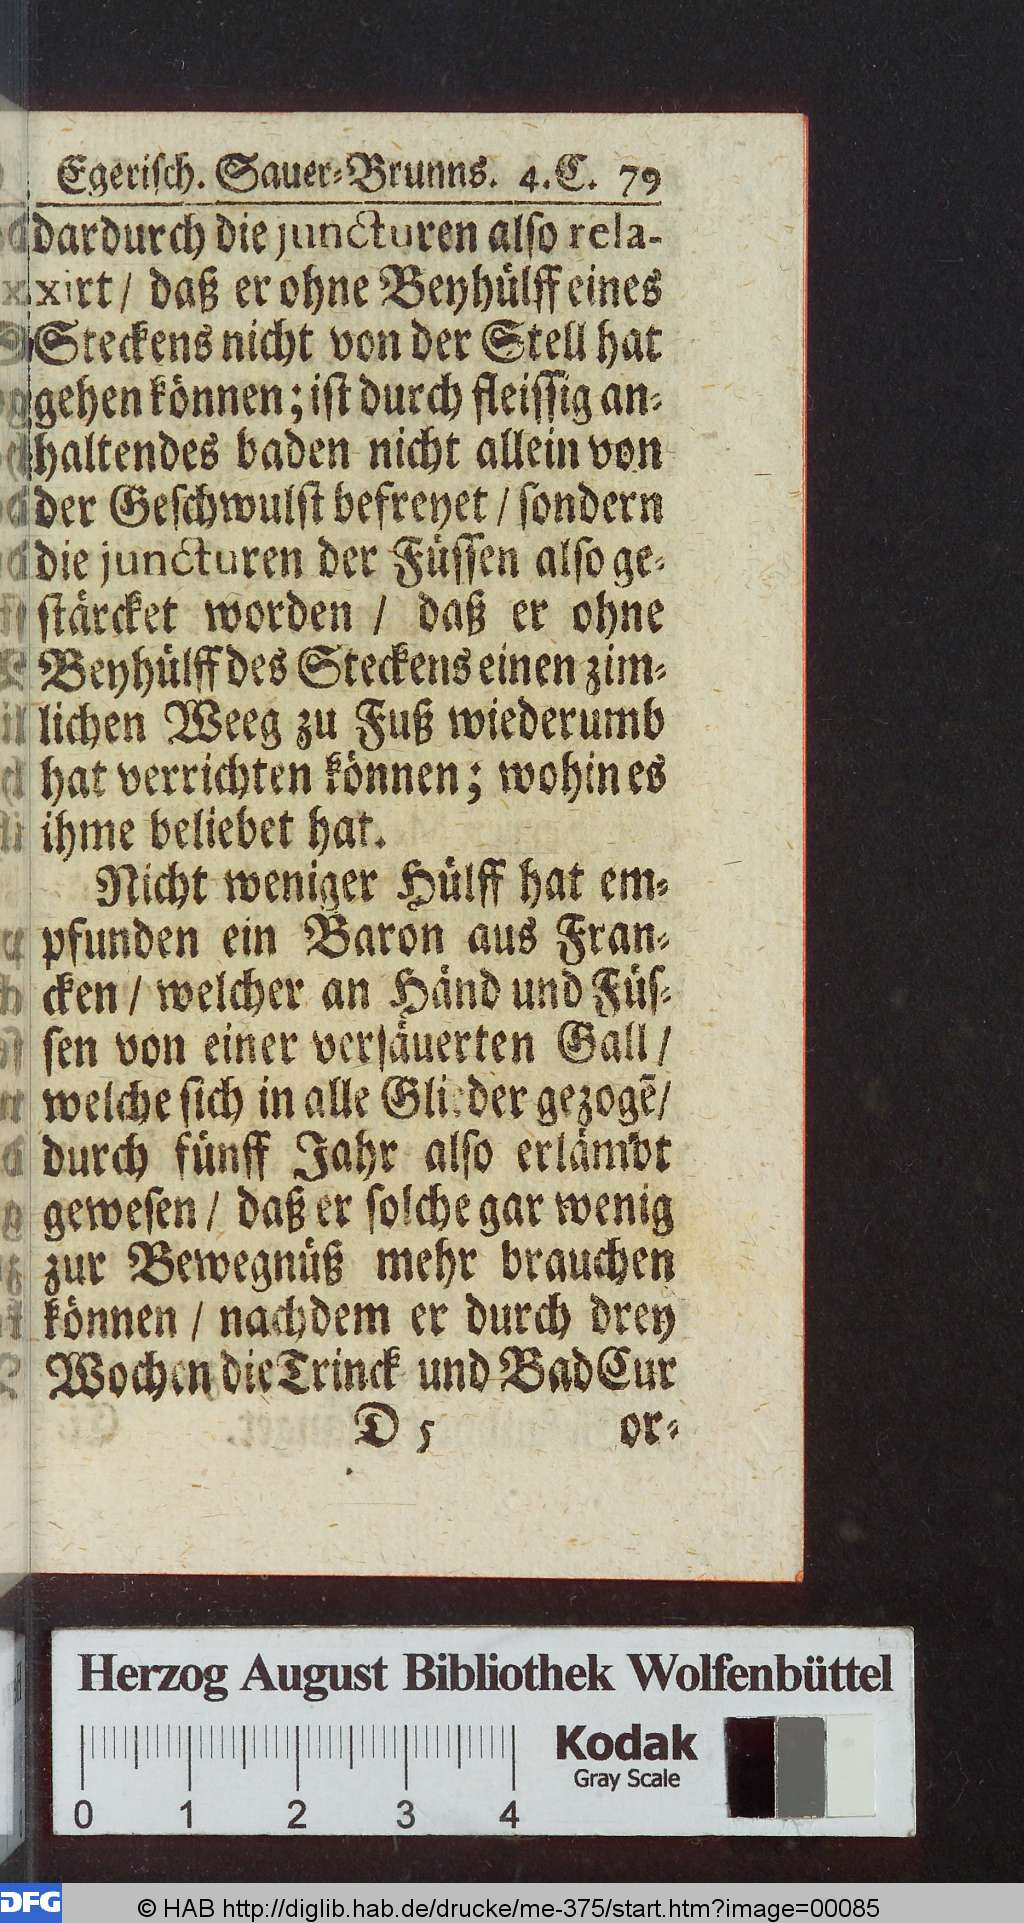 Egerisch. Sauer-Brunns. 4. C. 79
dardurch die juncturen also rela-
xirt / daß er ohne Beyhülff eines
Steckens nicht von der Stell hat
gehen können; ist durch fleissig an-
haltendes baden nicht allein von
der Geschwulst befreyet / sondern
die juncturen der Füssen also ge-
stärcket worden / daß er ohne
Beyhülff des Steckens einen zim-
lichen Weeg zu Fuß wiederumb
hat verrichten können; wohin es
ihme beliebet hat.
Nicht weniger Hülff hat em-
pfunden ein Baron aus Fran-
cken / welcher an Händ und Füs-
sen von einer versäuerten Gall /
welche sich in alle Glieder gezogē /
durch fünff Jahr also erlämbt
gewesen / daß er solche gar wenig
zur Bewegnüß mehr brauchen
können / nachdem er durch drey
Wochen die Trinck und Bad Cur
D 5 or-
Herzog August Bibliothek Wolfenbüttel
Kodak
Gray Scale
0 1 2 3 4
DFG
© HAB http://diglib.hab.de/drucke/me-375/start.htm?image=00085